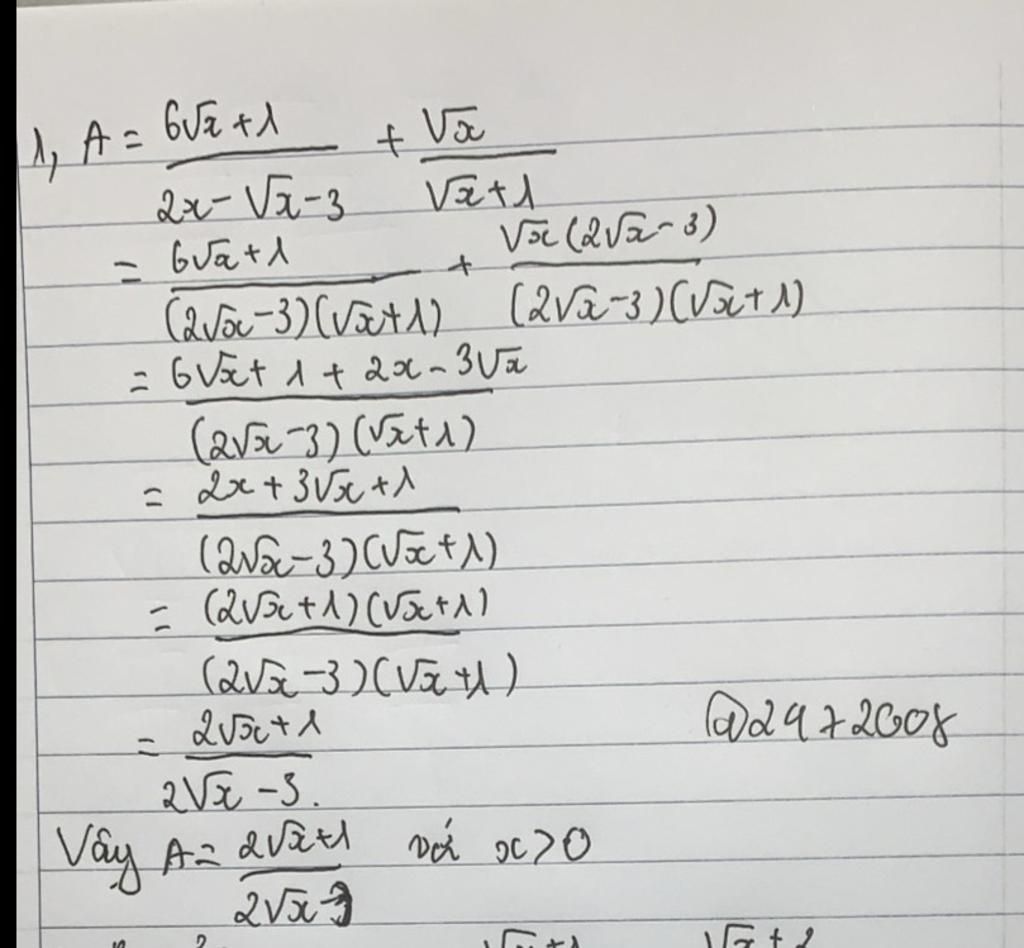 1, A = (6√x + 1)/(2x - √x - 3) + √x/(√x + 1)
= (6√x + 1)/((2√x - 3)(√x + 1)) + (√x(2√x - 3))/((2√x - 3)(√x + 1))
= (6√x + 1 + 2x - 3√x)/((2√x - 3)(√x + 1))
= (2x + 3√x + 1)/((2√x - 3)(√x + 1))
= ((2√x + 1)(√x + 1))/((2√x - 3)(√x + 1))
= (2√x + 1)/(2√x - 3).
Vây A = (2√x + 1)/(2√x - 3) với x > 0